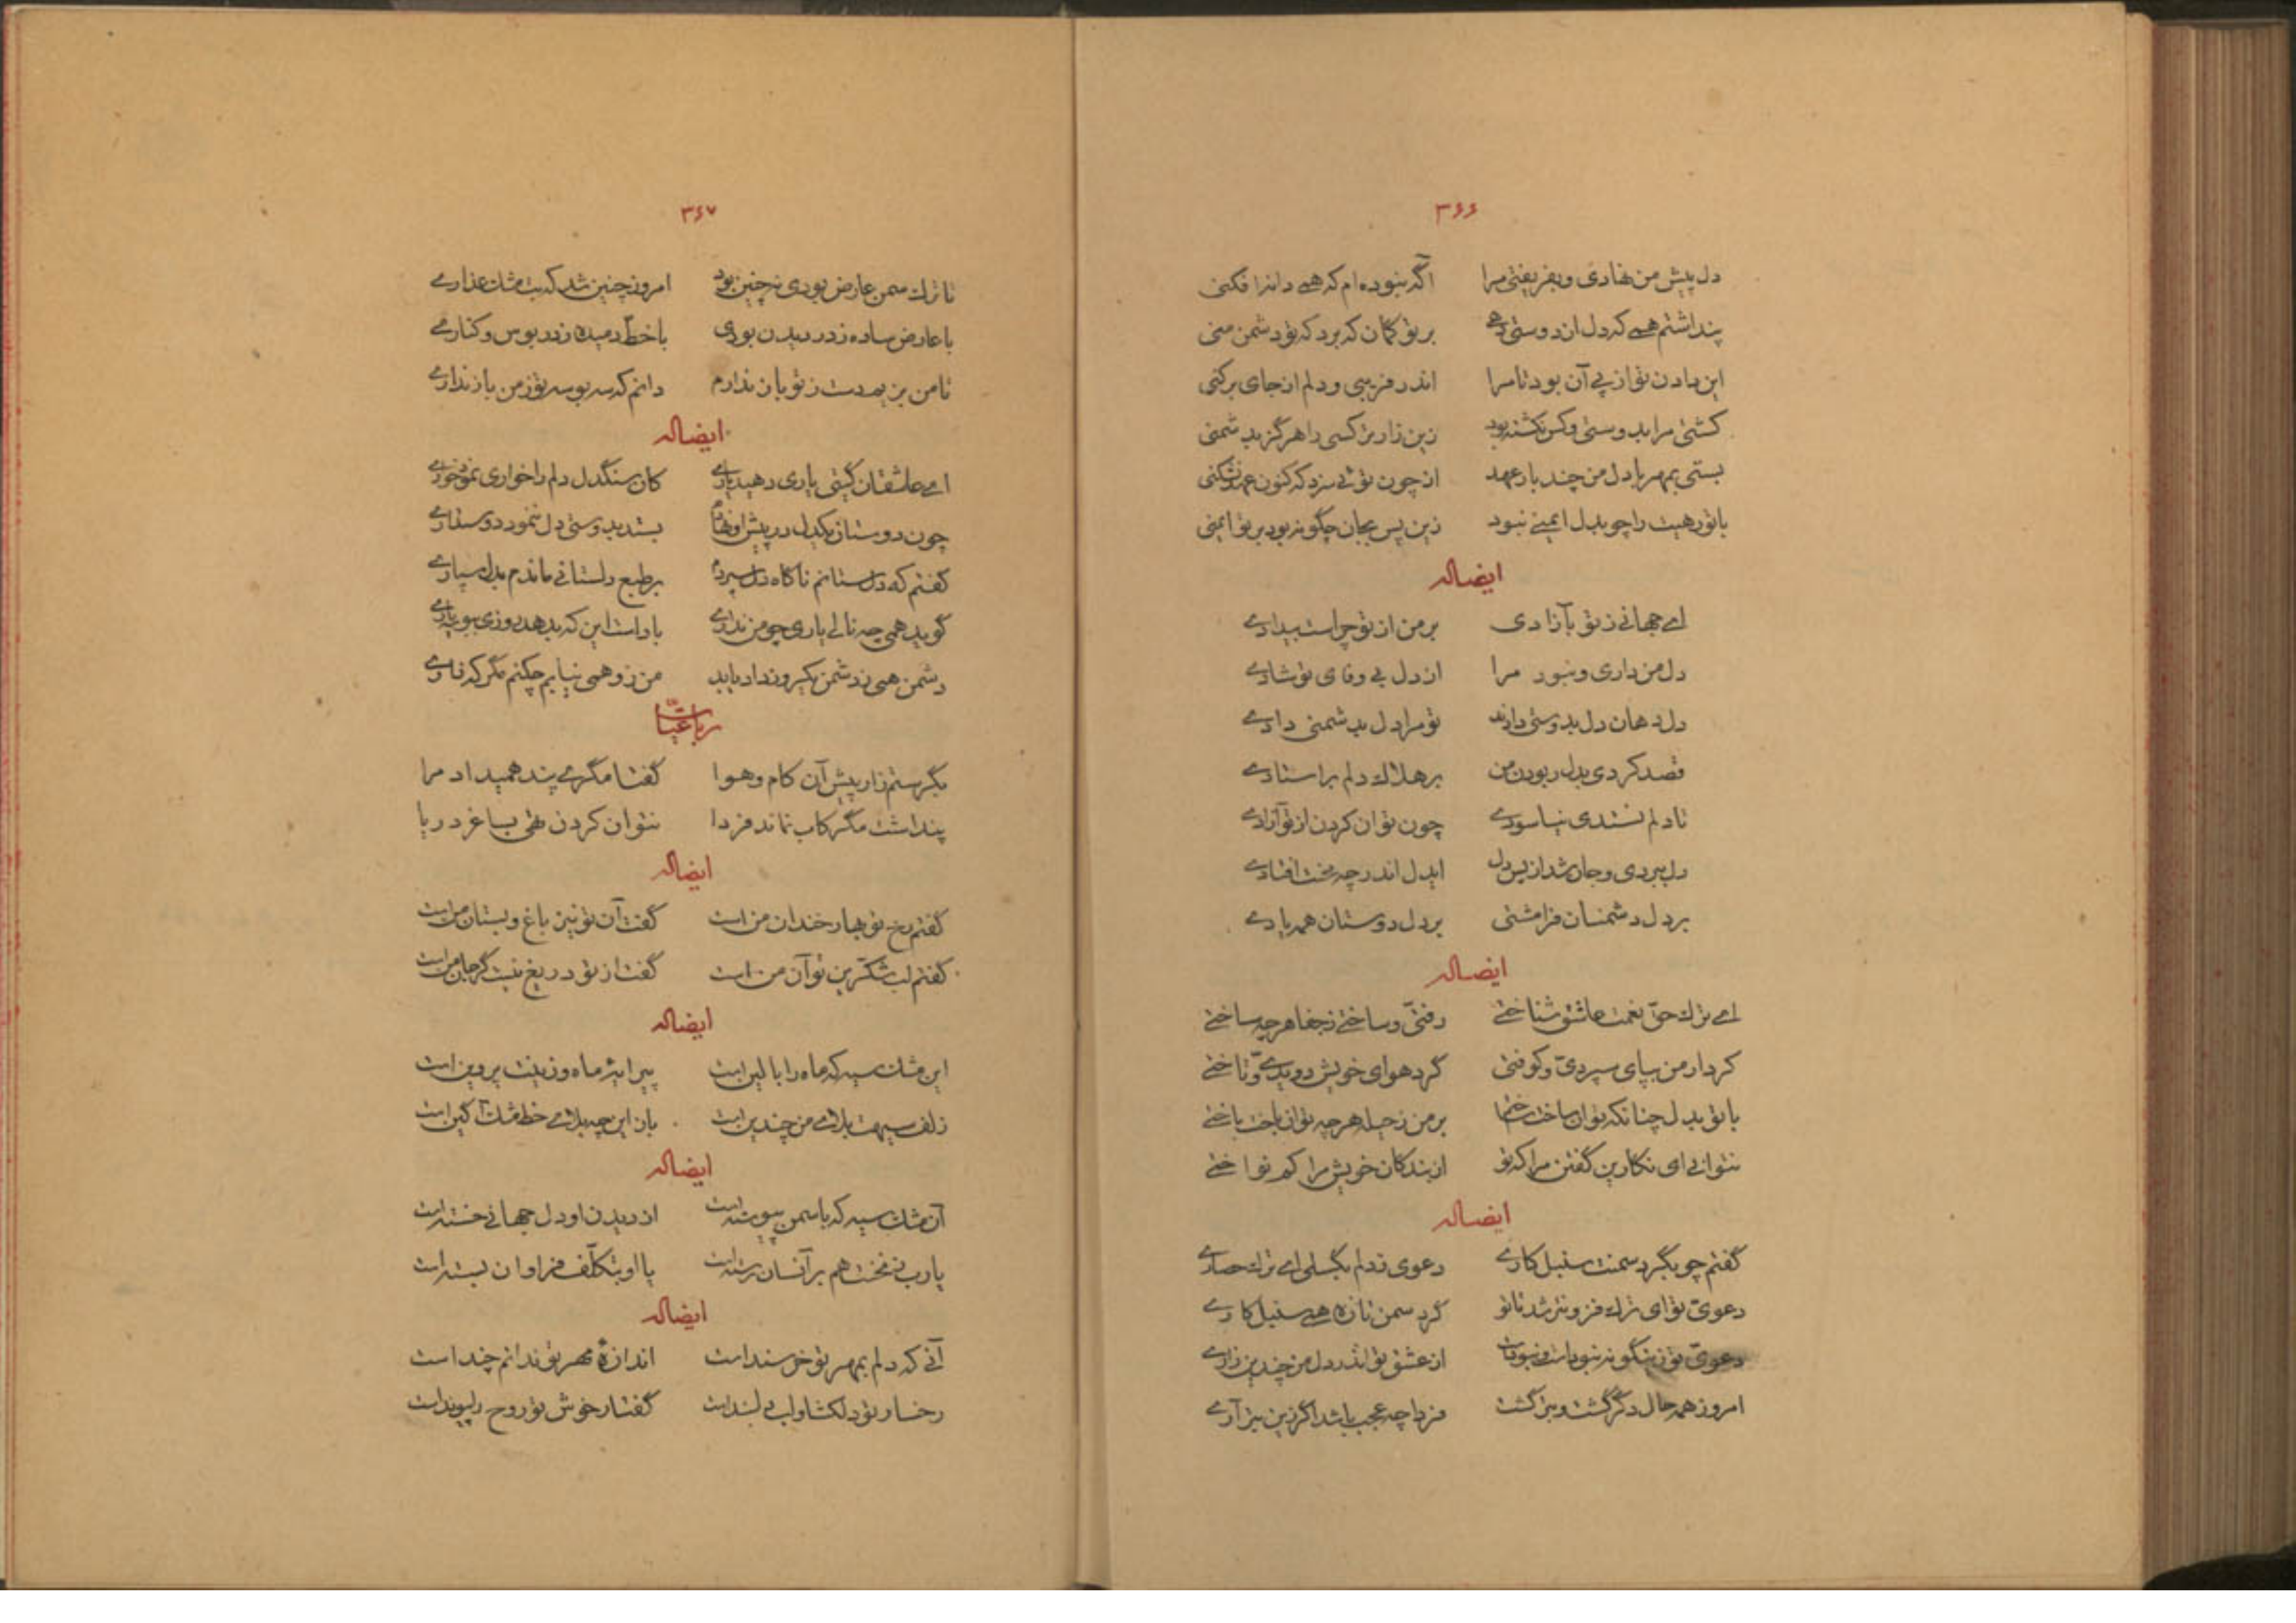 ۳۶۶
دل پیش من نهادی و بفریفتی مرا آگه نبوده‌ام که همی دانه افکنی
پنداشتم همی که دل از دوستی دهی بر تو گمان که برد که تو دشمن منی
این دادن تو از پی آن بود تا مرا اندر فریبی و دلم از جای برکنی
کشتی مرا بدوستی و کس نکشته بود زین زارتر کسی را هرگز بدشمنی
بستی بمهر با دل من چند بار عهد از چون تویی سزد که کنون عهد بشکنی
با تو رهیت را چو بدل ایمنی نبود زین پس بجان چگونه بود بر تو ایمنی
ایضاله
ای جهانی ز تو بآزادی بر من از تو چراست بیدادی
دل من داری و نبود مرا از دل بی وفای تو شادی
دل دهان دل بدوستی دادند تو مرا دل بدشمنی دادی
قصد کردی بدل ربودن من بر هلاک دلم براستادی
تا دلم نستدی نیاسودی چون توان کردن از تو آزادی
دل ببردی و جان شد از پس دل ایدل اندر چه سخت افتادی
بر دل دشمنان فرامشتی بر دل دوستان همه یادی
ایضاله
ای ترک حق نعمت عاشق شناختی رفتی و ساختی ز جفا هر چه ساختی
کردار من بپای سپردی و کوفتی گرد هوای خویش دویدی و تاختی
با تو بدل چنانکه توان ساخت ساختم بر من ز حیله هر چه توان باخت باختی
نتوانی ای نگارین گفتن مرا که تو از بندگان خویش مرا کم نواختی
ایضاله
گفتم چو بگرد سمنت سنبل کاری دعوی ز دلم بگسلی ای ترک حصاری
دعوی تو ای ترک فزونتر شد تا تو گرد سمن تازه همی سنبل کاری
دعوی تو زینگونه نبودست و نبودت از عشق تو اندر دل من چندین زاری
امروز همه حال دگر گشت و بتر گشت فردا چه عجب باشد اگر زین بتر آری
۳۶۷
تا ترک سمن عارض بودی نه چنین بود امروز چنین شد که بت مشک عذاری
با عارض ساده ز در دیدن بودی با خط دمیده ز در بوس و کناری
تا من بزیم دست ز تو باز ندارم دانم که سه بوسه تو ز من باز نداری
ایضاله
ای عاشقان گیتی یاری دهید یاری کان سنگدل دلم را خواری نمود خواری
چون دوستان یکدل دل پیش او نهادم بستد بدوستی دل ننمود دوستداری
گفتم که دل ستانم ناگاه دل سپردم بر طبع دلستانی ماندم بدل سپاری
گوید همی چه نالی یاری چو من نداری یاد است این که بدهد روزی
دشمن همی ز دشمن یکروز داد یابد من زو همی نیابم چکنم مگر که زاری
رباعیات
بگرستم زار پیش آن کام و هوا گفتا مگری پند همیداد مرا
پنداشت مگر کاب نماند فردا نتوان کردن تهی بساغر دریا
ایضاله
گفتم رخ تو بهار خندان من است گفت آن تو نیز باغ و بستان من است
گفتم لب شکرین تو آن من است گفت از تو دریغ نیست گر جان من است
ایضاله
این مشک سیه که ماه را بالین است پیرایه ماه و زینت پروین است
زلف سیهت بلای من چندین است باز این چه بلای خط مشک آگین است
ایضاله
آن مشک سیه که با سمن پیوسته است از دیدن او دل جهانی خسته است
یارب ز نخست هم بر آنسان رسته است یا او بتکلف فراوان بسته است
ایضاله
آنی که دلم بمهر تو خرسند است اندازهٔ مهر تو ندانم چند است
رخسار تو دلگشا و لب دلبند است گفتار خوش تو روح را پیوند است